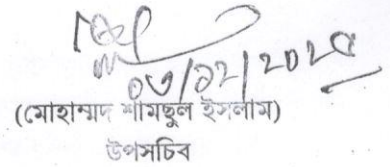 ০৩/১২/২০২৫
(মোহাম্মদ শামছুল ইসলাম)
উপসচিব